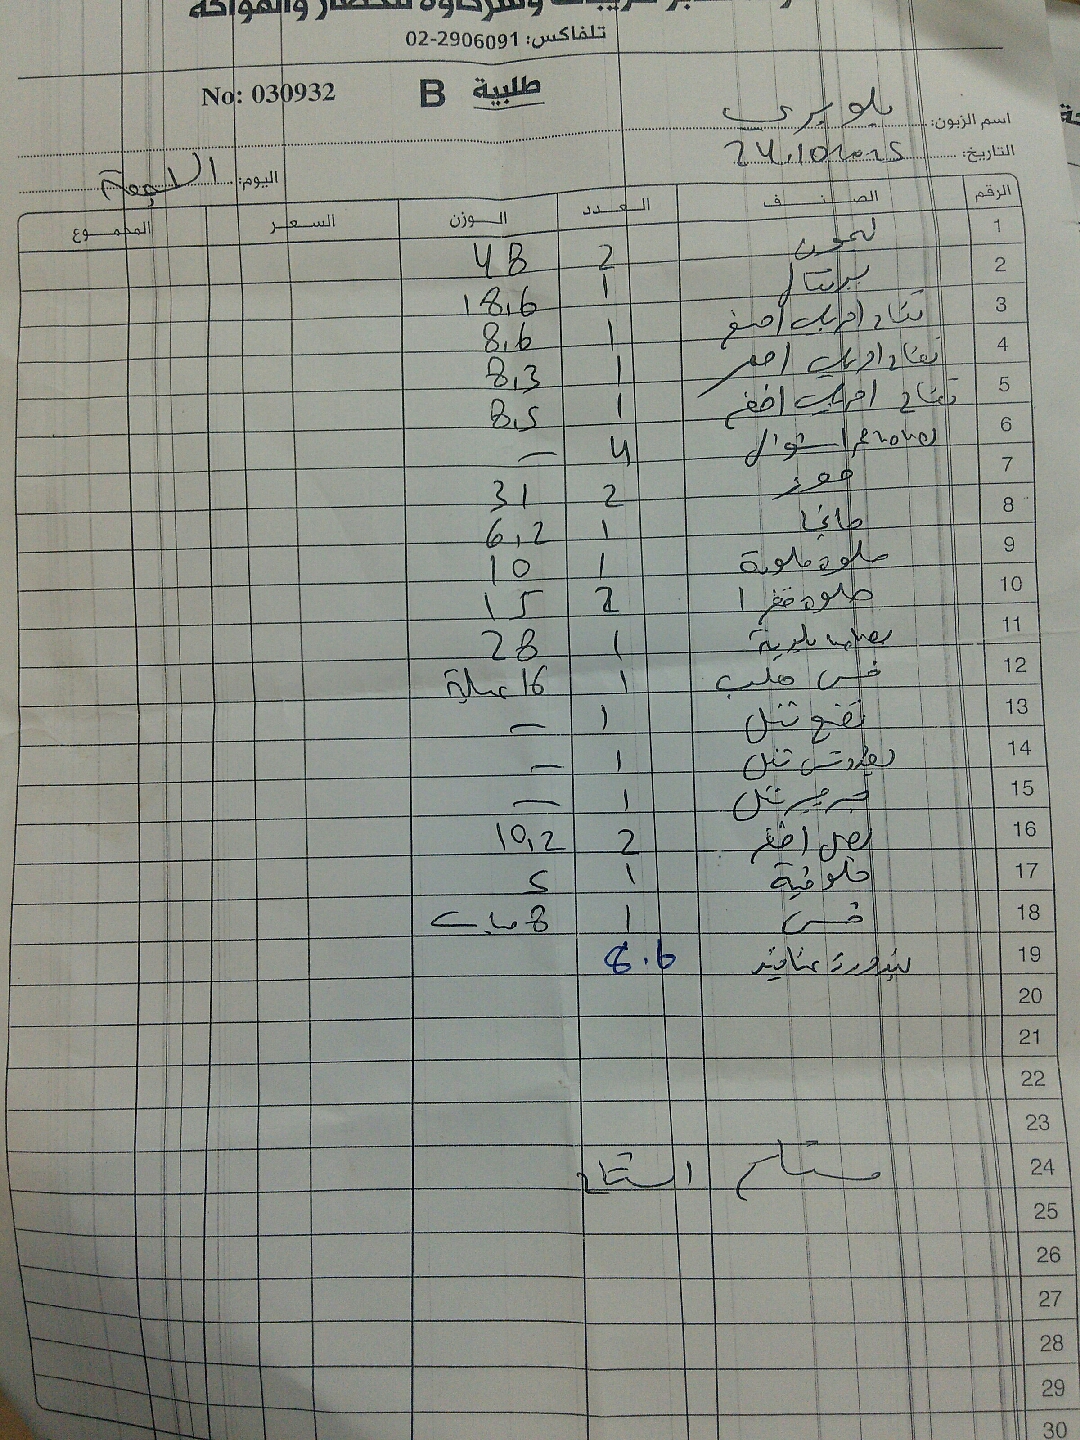 للخضار والفواكه
تلفاكس: 02-2906091
No: 030932 طلبية B
اسم الزبون:
التاريخ: 24.10.2025
اليوم: الجمعة
الرقم الصنف العدد الوزن السعر المجموع
1 ليمون 2 48
2 برتقال 1 18,6
3 تفاح امريكي اصفر 1 8,6
4 تفاح امريكي احمر 1 8,3
5 تفاح امريكي اخضر 1 8,5
6 4 —
7 موز 2 31
8 مانجا 1 6,2
9 حلوة ملونة 1 10
10 حلوة خضرا 2 15
11 1 28
12 خس 1 16
13 نعنع تنل 1 —
14 بقدونس تنل 1 —
15 جرجير تنل 1 —
16 بصل اخضر 2 10,2
17 ملوخية 1 5
18 خس 1 8 حبات
19 بندورة عناقيد 8.6
20
21
22
23
24
25
26
27
28
29
30